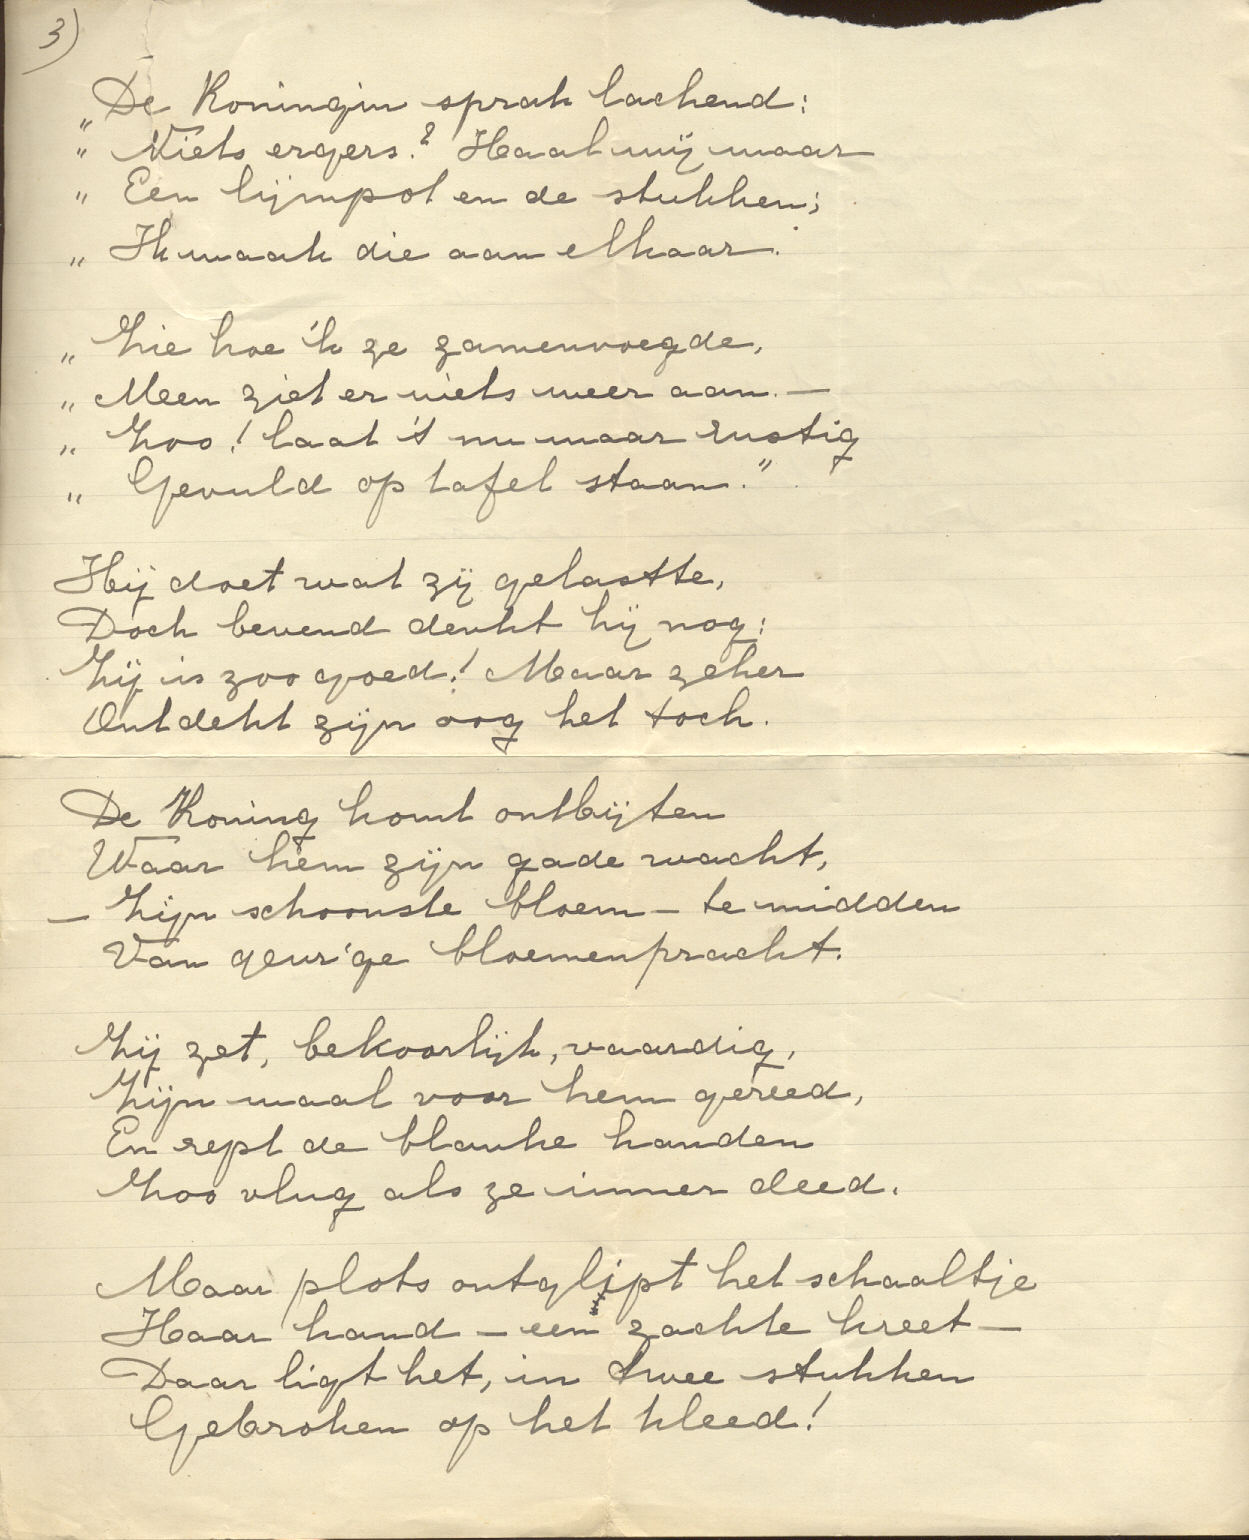 3)
„De Koningin sprak lachend:
„ Niets ergers? Haal mij maar
„ Een lijmpot en de stukken;
„ Ik maak die aan elkaar.
„ Zie hoe 'k ze zamenvoegde,
„ Men ziet er niets meer aan. —
„ Zoo! laat 't nu maar rustig
„ Gevuld op tafel staan."
Hij doet wat zij gelastte,
Doch bevend denkt hij nog:
Zij is zoo goed! Maar zeker
Ontdekt zijn oog het toch.
De Koning komt ontbijten
Waar hem zijn gade wacht,
— Zijn schoonste bloem — te midden
Van geur'ge bloemenpracht.
Zij zet, bekoorlijk, vaardig,
Zijn maal voor hem gereed,
En rept de blanke handen
Zoo vlug als ze immer deed.
Maar plots ontglipt het schaaltje
Haar hand — een zachte kreet —
Daar ligt het, in twee stukken
Gebroken op het kleed!